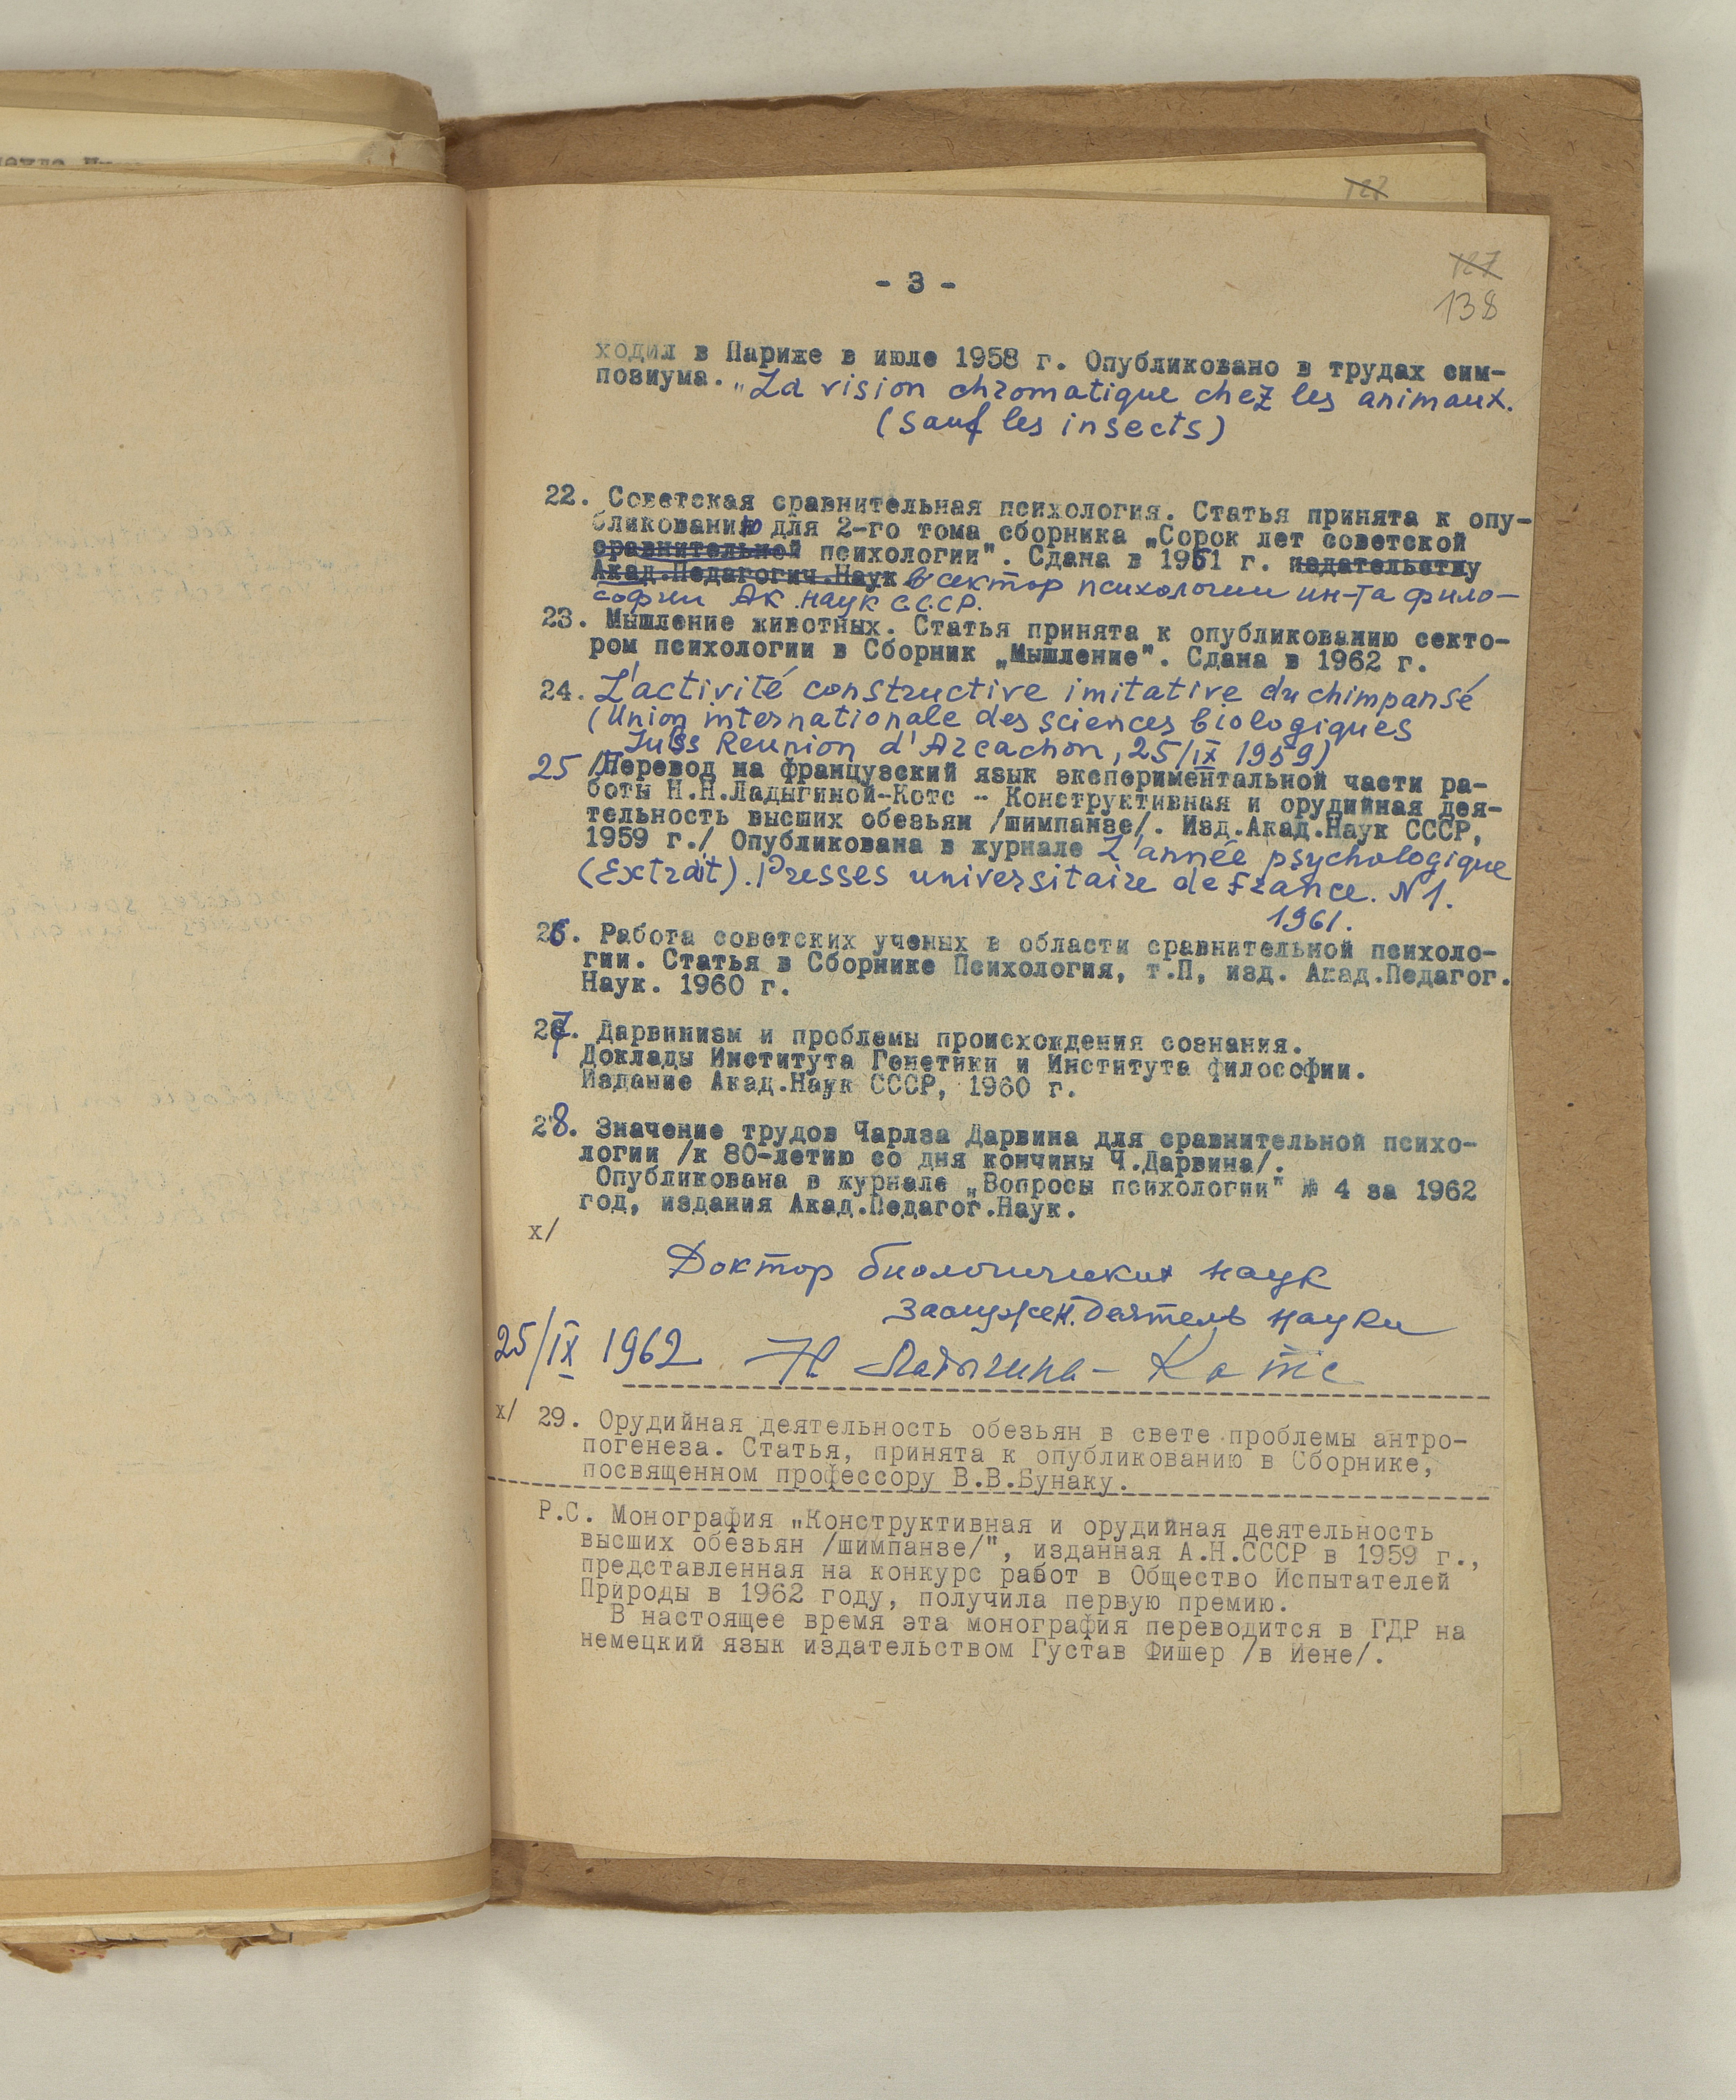 127
- 3 -
127
138
ходил в Париже в июле 1958 г. Опубликовано в трудах сим-
позиума. „La vision chromatique chez les animaux.
(Sauf les insects)
22. Советская сравнительная психология. Статья принята к опу-
бликованию для 2-го тома сборника „Сорок лет советской
сравнительной психологии". Сдана в 1961 г. издательству
Акад.Педагогич.Наук в сектор психологии ин-та фило-
софии Ак. наук С.С.С.Р.
23. Мышление животных. Статья принята к опубликованию секто-
ром психологии в Сборник „Мышление". Сдана в 1962 г.
24. L'activité constructive imitative du chimpansé
(Union internationale des sciences biologiques
Reunion d'Arcachon, 25/IX 1959)
25 /Перевод на французский язык экспериментальной части ра-
боты Н.Н.Ладыгиной-Котс - Конструктивная и орудийная дея-
тельность высших обезьян /шимпанзе/. Изд.Акад.Наук СССР,
1959 г./ Опубликована в журнале L'année psychologique
(Extrait). Presses universitaire de France. N 1.
1961.
26. Работа советских ученых в области сравнительной психоло-
гии. Статья в Сборнике Психология, т.П, изд. Акад.Педагог.
Наук. 1960 г.
27. Дарвинизм и проблемы происхождения сознания.
Доклады Института Генетики и Института философии.
Издание Акад.Наук СССР, 1960 г.
28. Значение трудов Чарлза Дарвина для сравнительной психо-
логии /к 80-летию со дня кончины Ч.Дарвина/.
Опубликована в журнале „Вопросы психологии" № 4 за 1962
год, издания Акад.Педагог.Наук.
х/
Доктор биологических наук
Заслужен. деятель науки
25/IX 1962 Н Ладыгина-Котс
х/ 29. Орудийная деятельность обезьян в свете проблемы антро-
погенеза. Статья, принята к опубликованию в Сборнике,
посвященном профессору В.В.Бунаку.
Р.С. Монография „Конструктивная и орудийная деятельность
высших обезьян /шимпанзе/", изданная А.Н.СССР в 1959 г.,
представленная на конкурс работ в Общество Испытателей
Природы в 1962 году, получила первую премию.
В настоящее время эта монография переводится в ГДР на
немецкий язык издательством Густав Фишер /в Иене/.